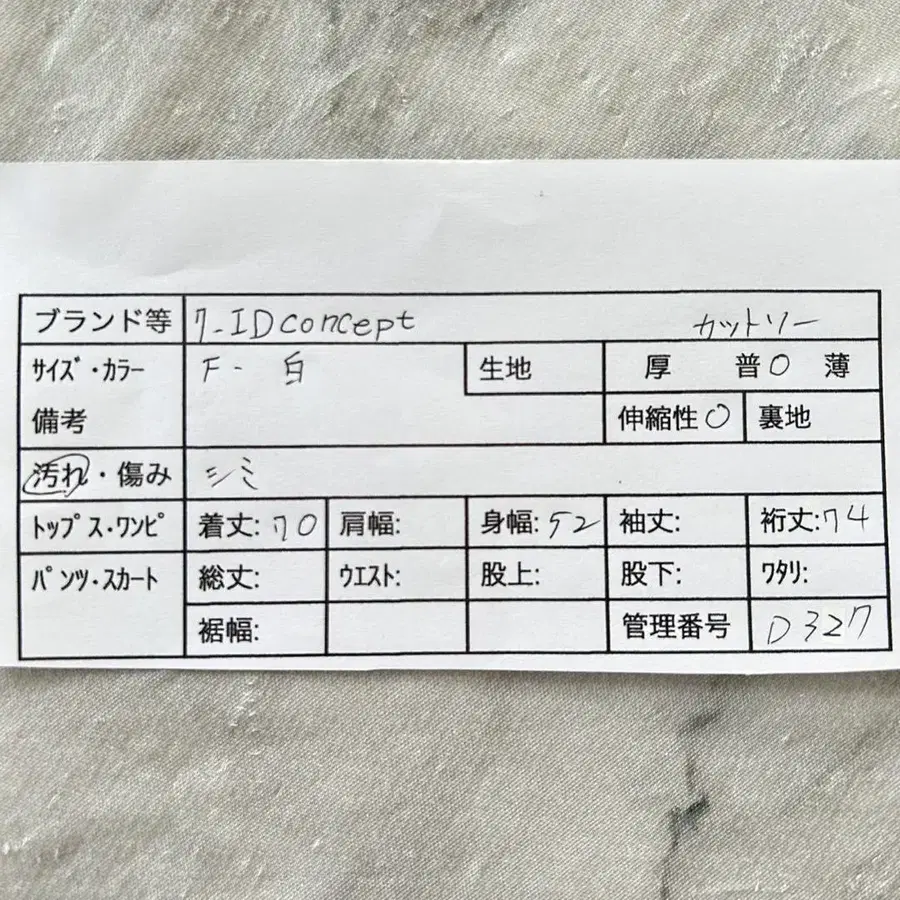 ブランド等 7-IDconcept カットソー
サイズ・カラー F- 白 生地 厚 普○ 薄
備考 伸縮性○ 裏地
汚れ・傷み シミ
トップス・ワンピ 着丈:70 肩幅: 身幅:52 袖丈: 裄丈:74
パンツ・スカート 総丈: ウエスト: 股上: 股下: ワタリ:
裾幅: 管理番号 D327